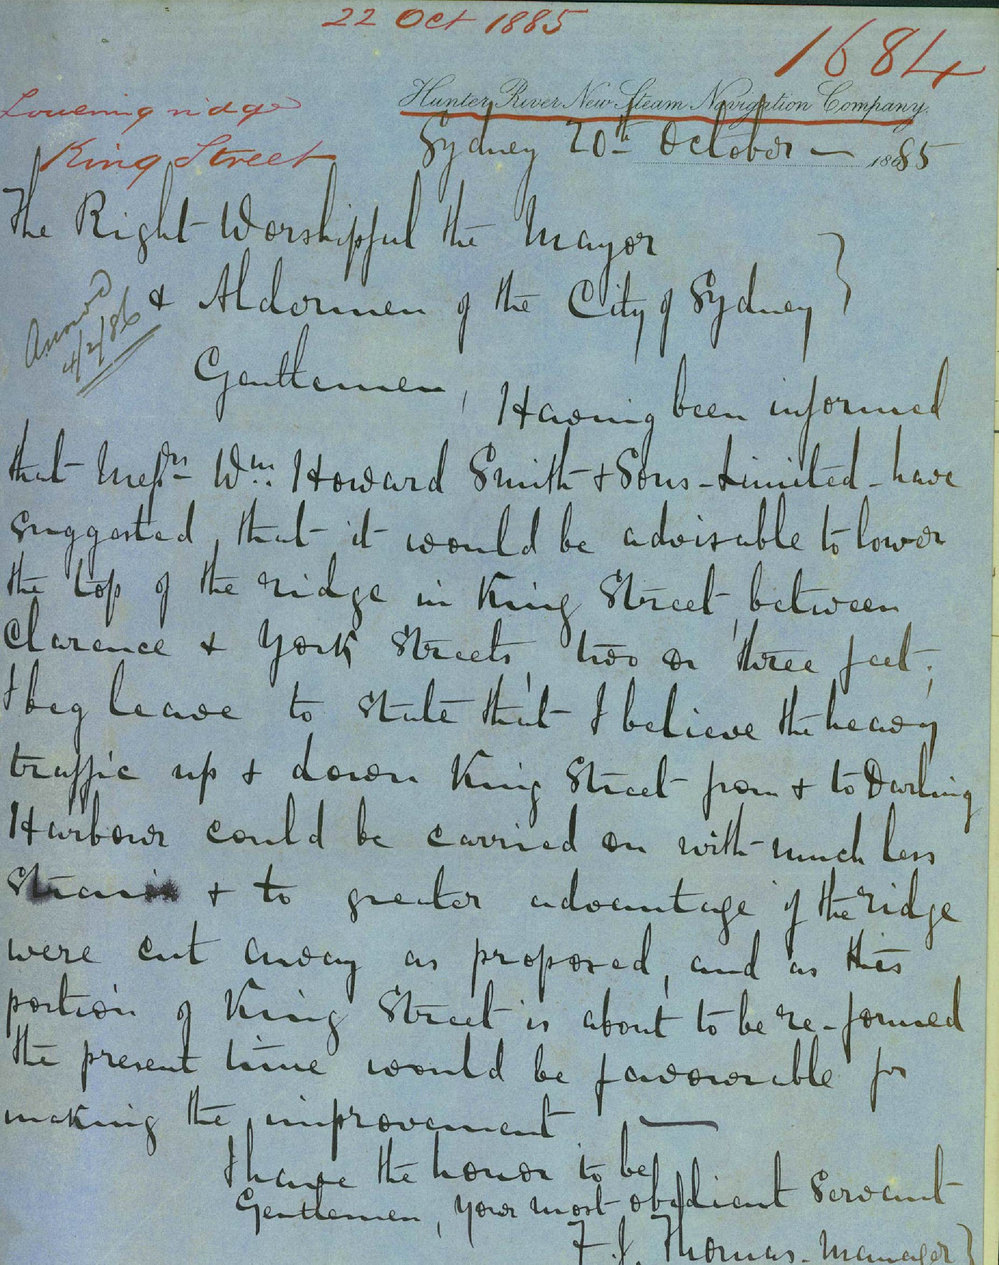 22 Oct 1885
1684
Lowering ridge
King Street
Hunter River New Steam Navigation Company.
Sydney 20th October 1885
The Right Worshipful the Mayor
& Aldermen of the City of Sydney }
Ansd
4/2/86
Gentlemen,
Having been informed
that Messrs Wm. Howard Smith & Sons Limited have
suggested, that it would be advisable to lower
the top of the ridge in King Street, between
Clarence & York Streets, two or three feet;
I beg leave to state that I believe the heavy
traffic up & down King Street from & to Darling
Harbour could be carried on with much less
strain & to greater advantage if the ridge
were cut away as proposed, and as this
portion of King Street is about to be re-formed
the present time would be favourable for
making the improvement —
I have the honor to be
Gentlemen, your most obedient Servant
F. J. Thomas. Manager }